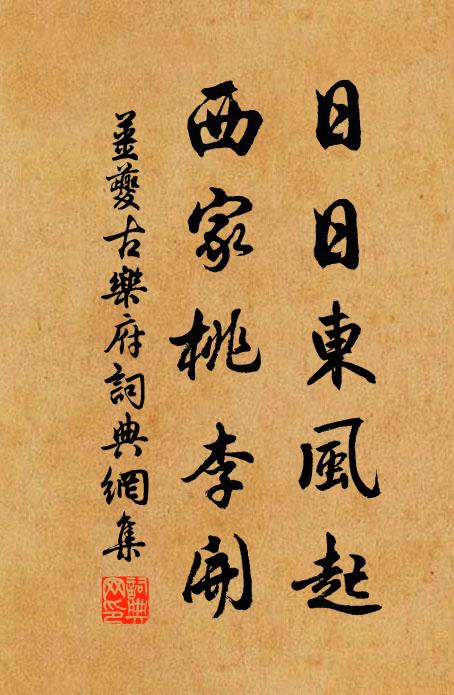 日日東風起
西家桃李開
薑夔古樂府詞典網集
詞典网印